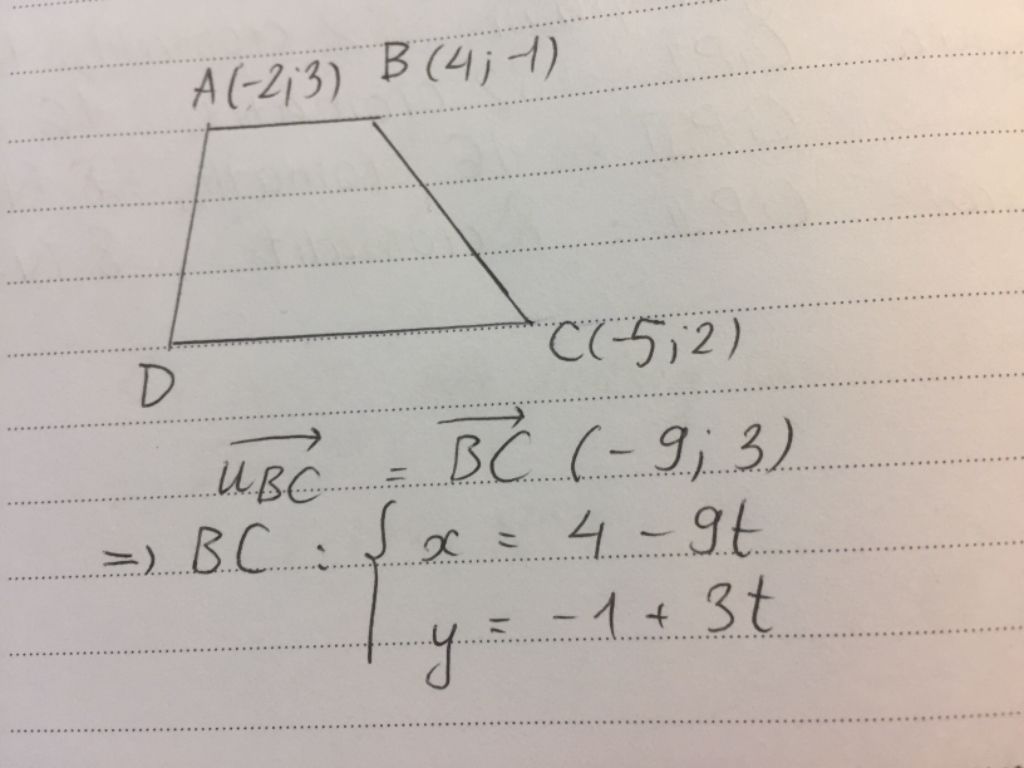 A(-2;3) B(4;-1)
C(-5;2)
D
\overrightarrow{u_{BC}} = \overrightarrow{BC} (-9; 3)
=> BC : { x = 4 - 9t
y = -1 + 3t